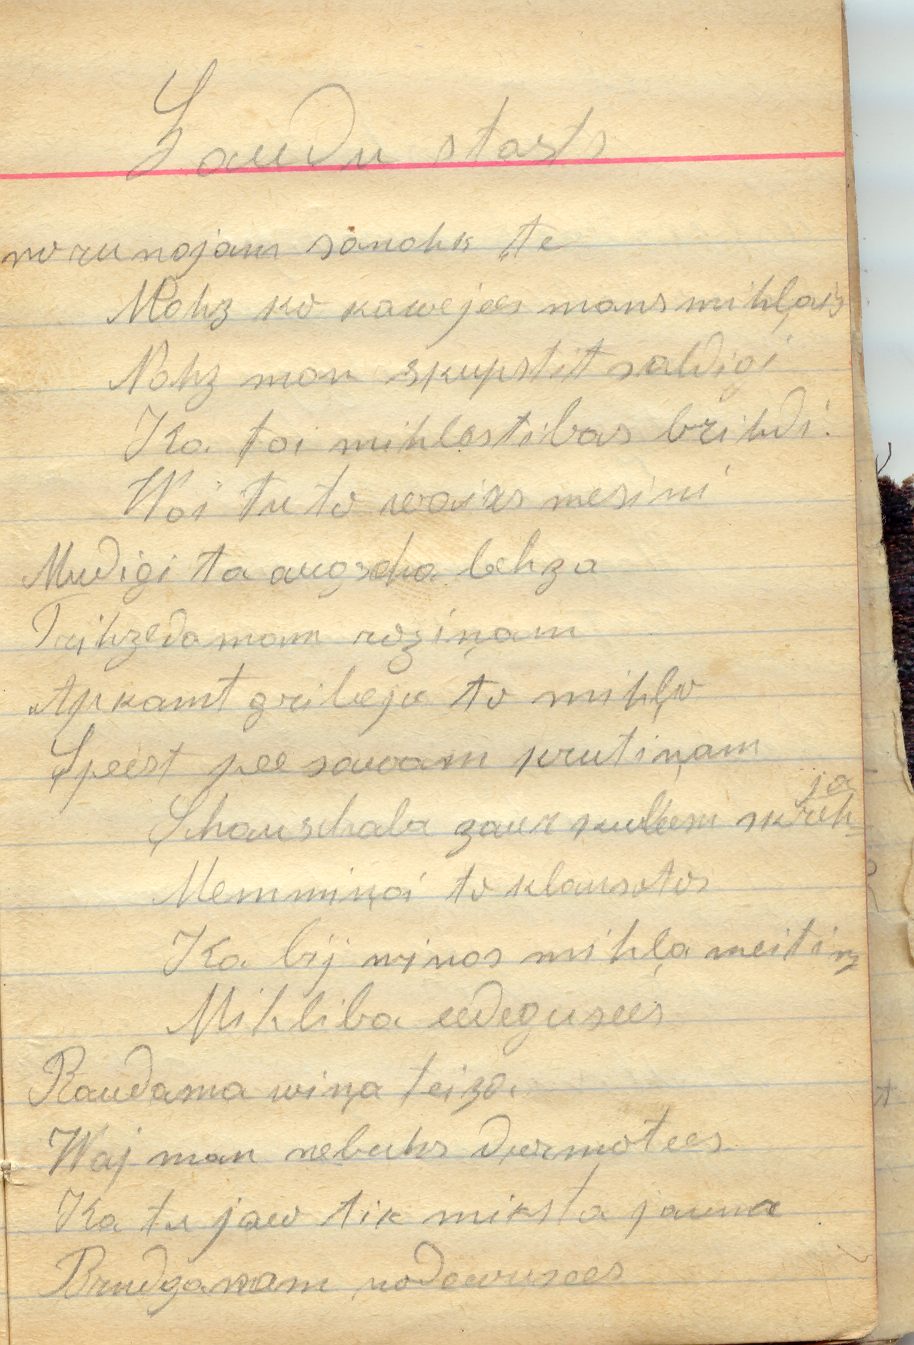 Laudu stasts
norunajam sanahk te
Nahz ko kawejees mans mihļais
Nahz man skupstit saldigi
Ka tai mihlestibas brihdi.
Wai tu to wairs mesini
Mudigi ta augscha lehza
Trihzedamam roziņam
Apkamt gribeja to mihļo
Speest pee sawam krutiņam
Schauschala zaur kuleem skreh
ja
Memmiņai to klausotos
Ka bij wiņas mihļa meitiņ
Mihliba eedegusees
Raudama wiņa teiza.
Waj man nebuhs durmotees
Ka tu jaw tik miksta jauna
Brudganam nodewusees